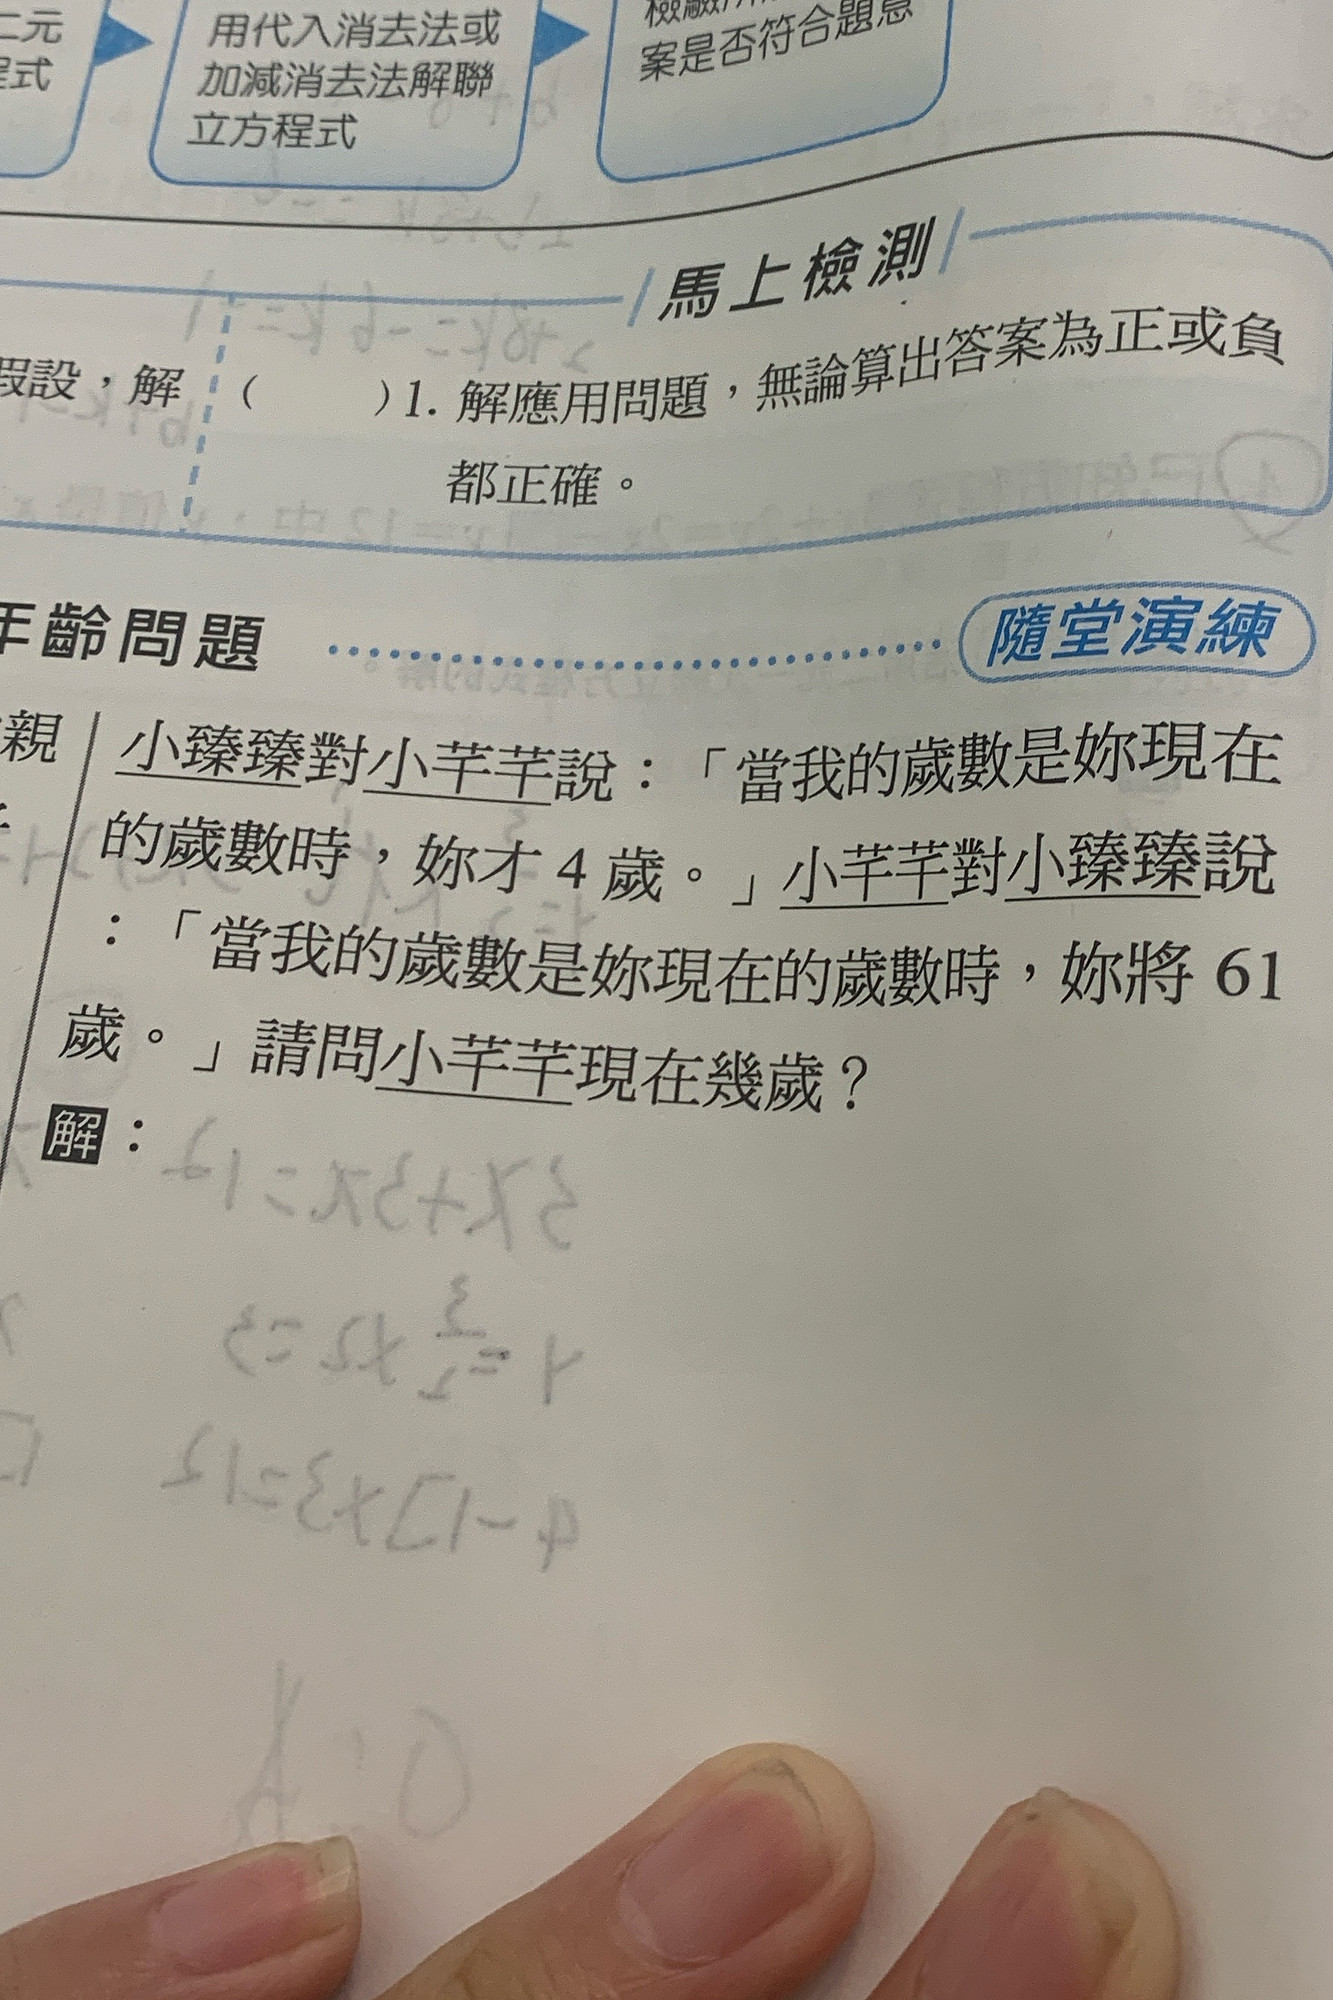 二元
程式
用代入消去法或
加減消去法解聯
立方程式
案是否符合題意
馬上檢測
假設，解
(　　)1. 解應用問題，無論算出答案為正或負
都正確。
年齡問題
隨堂演練
親
小臻臻對小芊芊說：「當我的歲數是妳現在
的歲數時，妳才 4 歲。」小芊芊對小臻臻說
：「當我的歲數是妳現在的歲數時，妳將 61
歲。」請問小芊芊現在幾歲？
解：